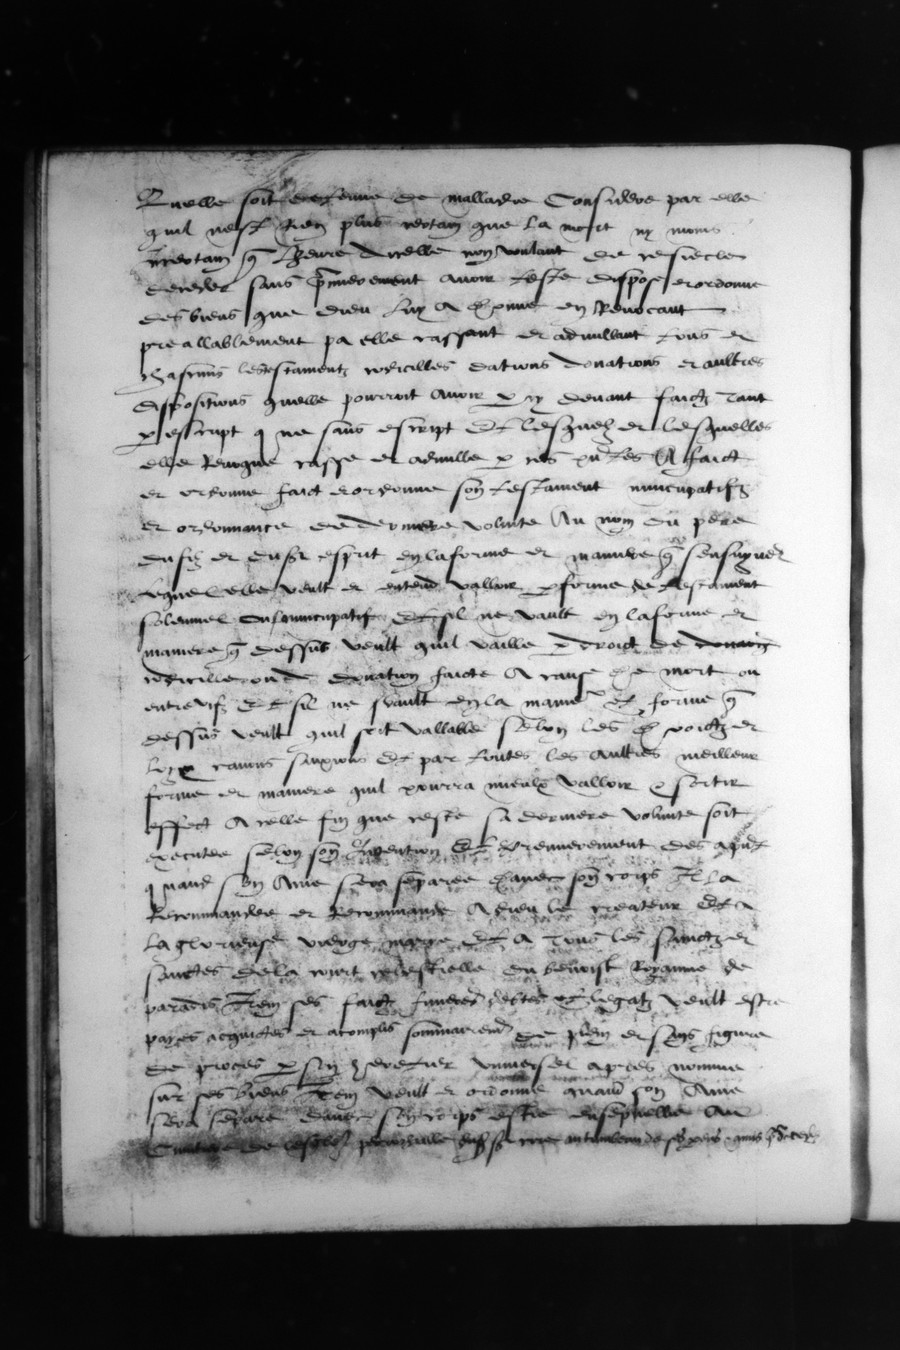 Quelle soit detenue de malladie Considere par elle
quil nest Rien plus certain que La mort ny moins
Incertain q Lheure dicelle non voulant de ce siecle
deceder sans premierement avoir teste dispose et ordonne
des biens que dieu luy a donne en Revocant
preallablement pa elle cassant et adnullant tous et
chascuns les testaments codicilles dations donations et aultres
dispositions quelle pourroit avoir p cy devant faictz Tant
p escript q ne sans escript Et lesquelz et lesquelles
elle Revoque casse et adnulle p ces pntes A faict
et ordonne faict et ordonne son testament nuncupatifz
et ordonnance de derniere volunte Au nom du pere
du filz et du st esprit en la forme et maniere q sensuyvet
Lequel elle veult et entend valloir p forme de testament
solennel nuncupatif Et sil ne vault en la forme et
maniere q dessus veult quil vaille p droict de
codicille ou d donation faicte A cause de mort ou
entre vifz Et sil ne vault en la manie et forme q
dessus veult quil soit vallable selon les droictz et
Loix canons Et par toutes les aultres meilleur
forme et maniere quil pourra mieulx valloir & sortir
effect A celle fin que ceste sa derniere volunte soit
executee selon son Intention Et premierement des apnt
quand son Ame sera separee davec son corps Ella
Recommandee et Recommande A dieu le createur Et a
La glorieuse vierge marye Et A Tous les sainctz et
sainctes de la court celestielle du benoist Royaume de
paradis Item ses faictz funeres debtes et legatz veult estre
payes acquictes et acomplis sommairemt de plain et sans figure
de proces p son heretier universel apres nomme
sur ses biens Item veult et ordonne quand son Ame
sera separe davec son corps estre ensepvellie Au
Cimitiere de parochialle